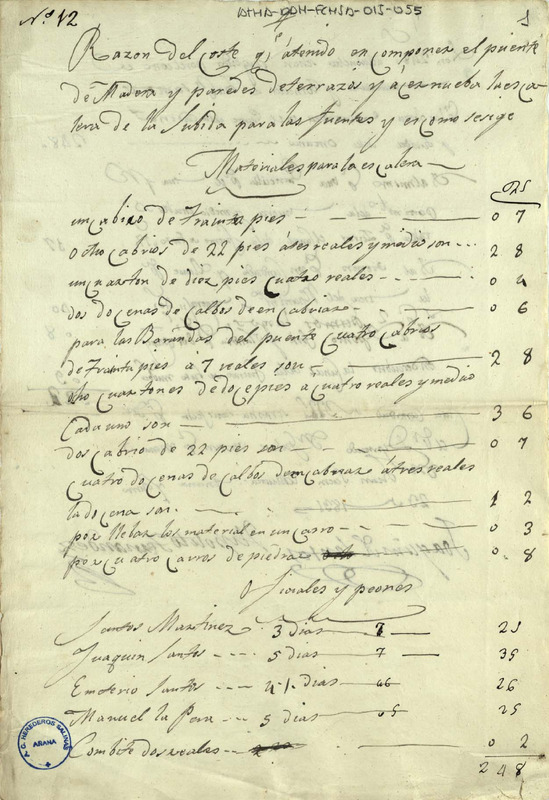 Nº 12
ATHA-DAH-FCHSA-015-055
1
Razon del coste qe a tenido en componer el puente
de Madera y paredes de terrazos y acer nueba la esca-
lera de la Subida para las fuentes y es como se sige
Materiales para la escalera
un cabrio de trainta pies 0 7
ocho cabrios de 22 pies a tres reales y medio son 2 8
un quarton de diez pies cuatro reales 0 4
dos docenas de Calbos de encabriar 0 6
para las Barandas del puente Cuatro Cabrios
de trainta pies a 7 reales son 2 8
ocho cuartones de doce pies a cuatro reales y medio
Cada uno son 3 6
dos cabrio de 22 pies son 0 7
Cuatro docenas de Calbos de encabriar a tres reales
la docena son 1 2
por llebar los material en un carro 0 3
por cuatro carros de piedra 0 8
Oficiales y peones
Santos Martinez 3 dias 7 21
Juaquin Santos 5 dias 7 35
Emeterio Santos 4 1/2 dias 06 26
Manuel la Pera 5 dias 05 25
Combite dos reales 0 2
2 4 8
A.C. HEREDEROS SALINAS
ARAHA